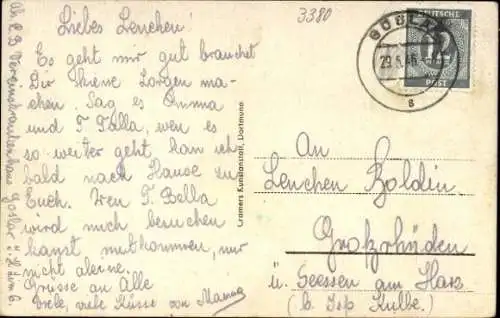 3380
Liebes Lenchen!
Es geht mir gut brauchet
Dir keine Sorgen ma-
chen. Sag es Omma
und T. Bella, wen es
so weiter geht kan ich
bald nach Hause zu
Euch. Wen T. Bella
wird mich besuchen
kanst mitkommen, nur
nicht alerne.
Grüsse an Alle
Viele, viele Küsse von Mama
Vereinskrankenhaus Goslar
Cramers Kunstanstalt, Dortmund
DEUTSCHE
12
POST
GOSLAR
29.5.46
a
An
Lenchen Boldin
Großrhüden
ü. Seessen am Harz
(b. Kulbe.)